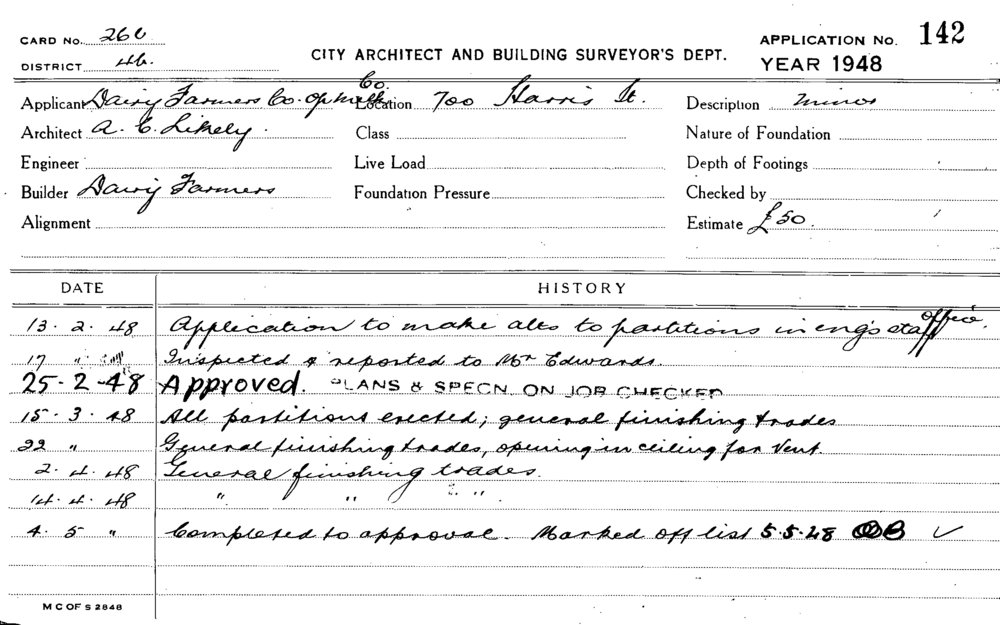 CARD No. 266
CITY ARCHITECT AND BUILDING SURVEYOR'S DEPT.
APPLICATION No. 142
DISTRICT 4b.
YEAR 1948
Applicant Dairy Farmers Co. Op Milk Co. Location 700 Harris St. Description minor
Architect A. E. Likely. Class Nature of Foundation
Engineer Live Load Depth of Footings
Builder Dairy Farmers Foundation Pressure Checked by
Alignment Estimate £50.
DATE HISTORY
13. 2. 48 Application to make alts to partitions in eng's staff office.
17 " Inspected & reported to Mr Edwards.
25-2-48 Approved. PLANS & SPECN. ON JOB CHECKED
15. 3. 48 All partitions erected; general finishing trades
22 " General finishing trades, opening in ceiling for Vent.
2. 4. 48 General finishing trades.
14. 4. 48 " " "
4. 5 " Completed to approval. Marked off list 5.5.48 ✓
M C OF S 2848